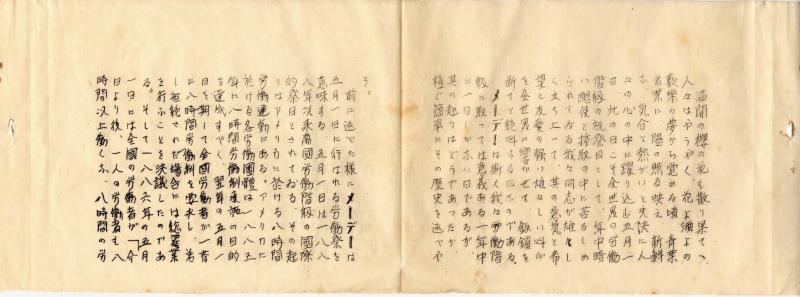 満開の櫻の花も散り果てゝ
人々はやうやく、花よ酒よの
歓樂の夢から覚める頃、青葉
若葉に、陽の照る映え、新鮮
な、気分と熱がいと爽快に人
々の心の中に躍り込む五月一
日、此の日こそ全世界の労働
階級の祝祭日として、年中時
い酷使と搾取の中に苦るしめ
られてゐる我々同志が雄々し
く立ち上って、其の意気と希
望と友愛の強い雄々しい叫が
を全世界に響かせて、鉄鎖を
断てと絶叫する日なのである。
メーデーは斯く我々労働階
級に取っては意義ある一年中
に一日しかない日であるが、
其の起りはどうであったか、
極く簡単にその歴史を述べや
う。
前に述べた様にメーデーは
五月一日に行はれる労働祭を
意味する。五月一日は一八八
八年以来萬國労働階級の國際
的祭日とされてゐる。その起
りはアメリカに於ける八時間
労働運動にある。アメリカに
於ける各労働團體は一八八五
年に八時間労働制度実施の目的
を達成すべく、翌年の五月一
日を期して全國労働者が一斉
に八時間労働制を要求し、若
し拒絶された場合には総罷業
を行ふことを決議したのであ
る。そして一八八六年の五月
一日には全國の労働者が「今
日より後、一人の労働者も八
時間以上働くな、八時間の労